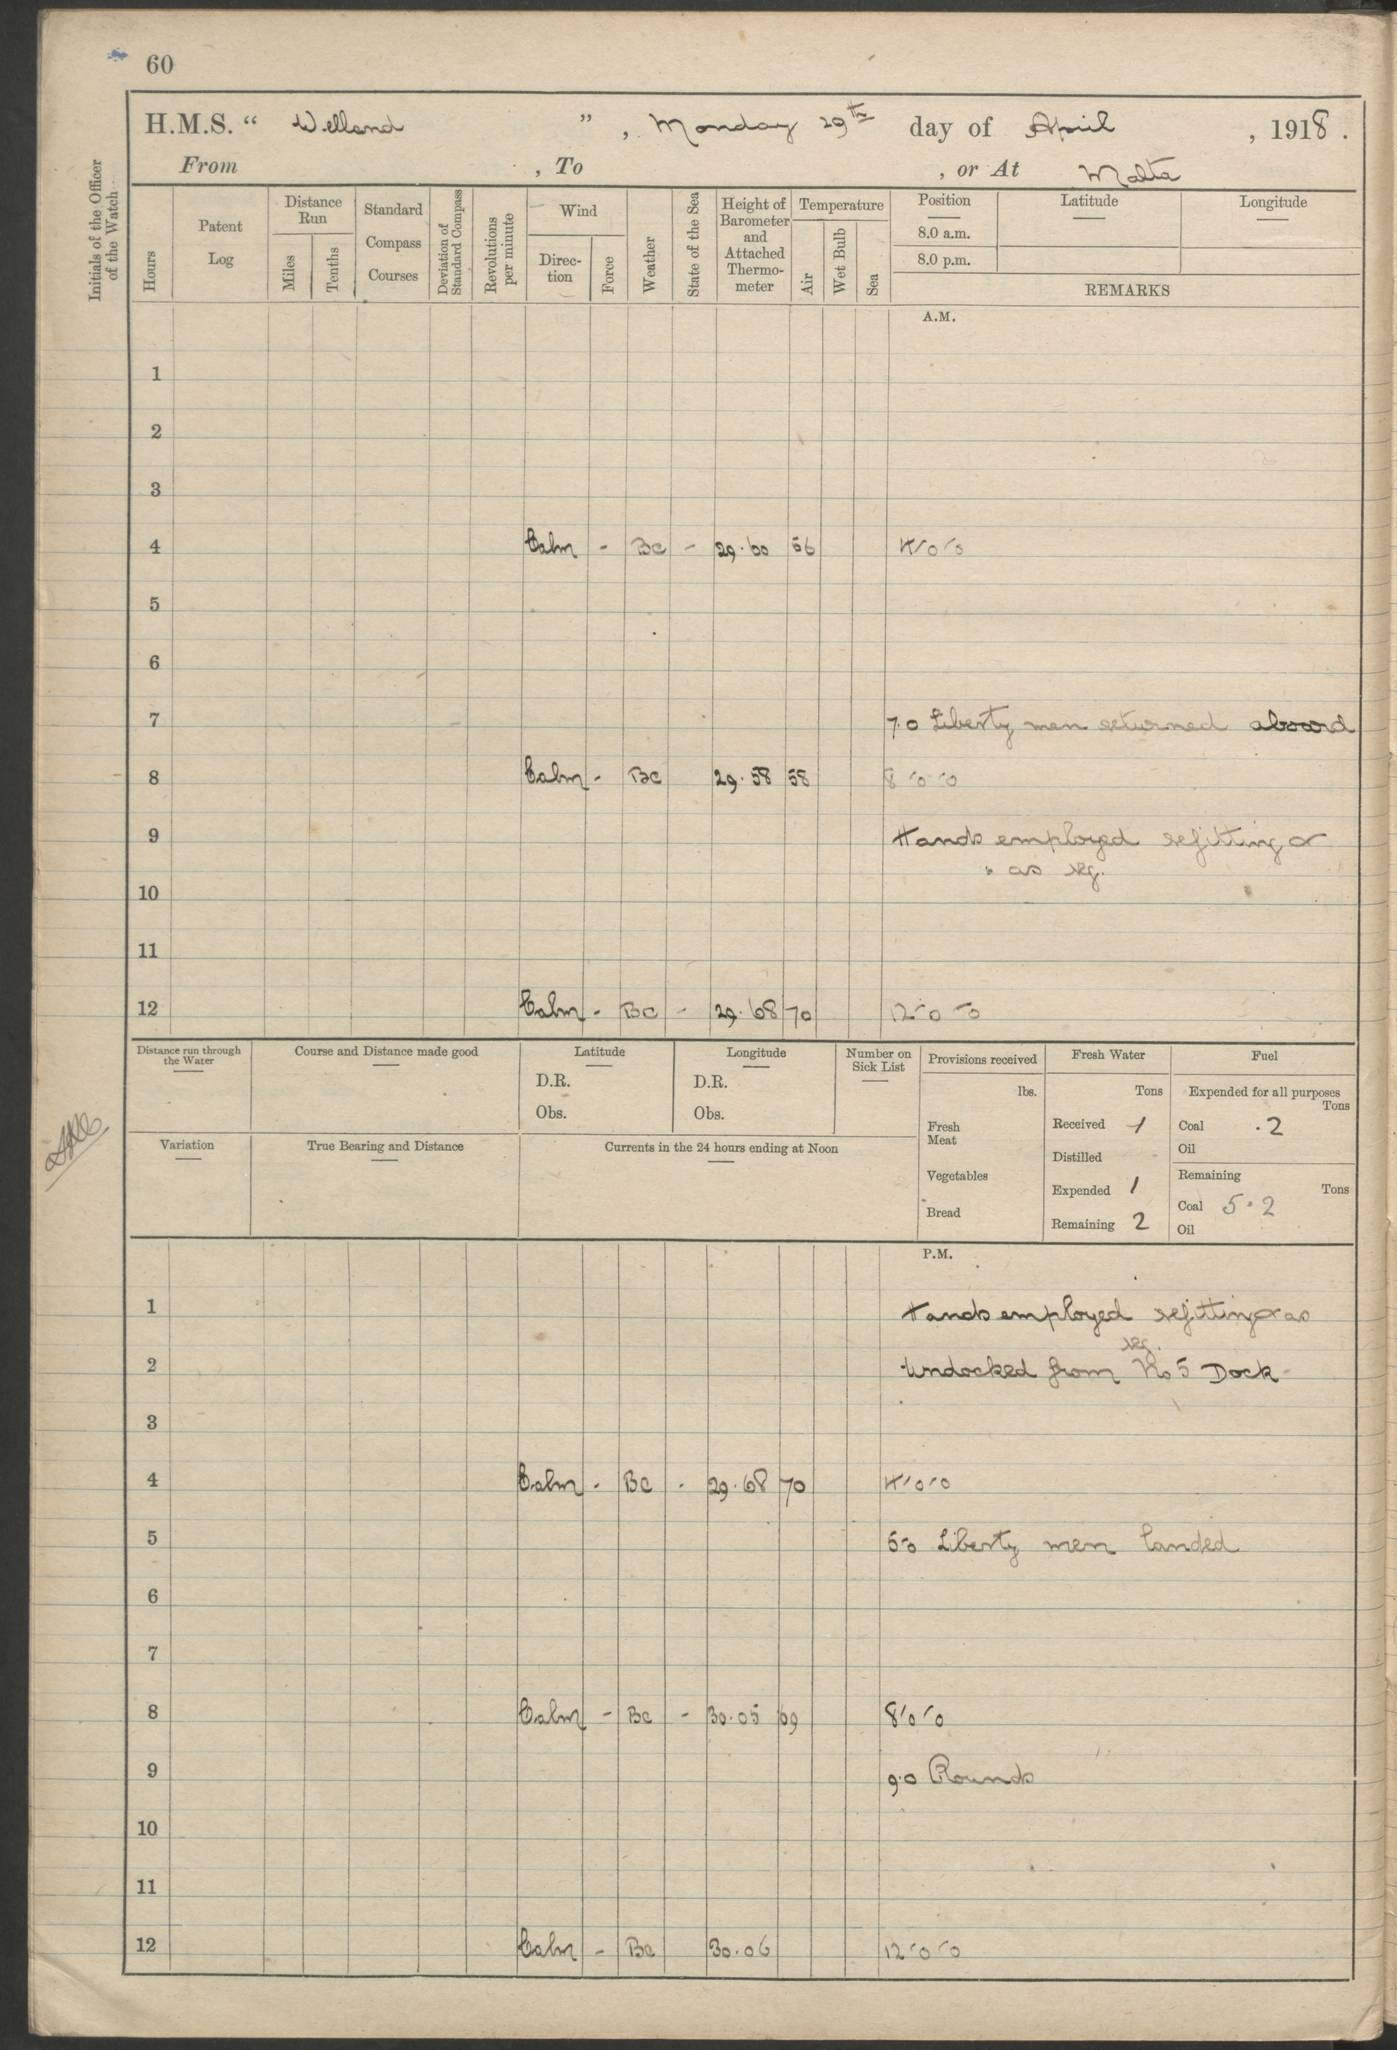 60
H.M.S. “ Welland ” , Monday 29th day of April , 1918 .
From , To , or At Malta
Initials of the Officer of the Watch
Hours
Patent Log
Distance Run
Miles
Tenths
Standard Compass Courses
Deviation of Standard Compass
Revolutions per minute
Wind
Direction
Force
Weather
State of the Sea
Height of Barometer and Attached Thermometer
Temperature
Air
Wet Bulb
Sea
Position
8.0 a.m.
8.0 p.m.
Latitude
Longitude
REMARKS
A.M.
1
2
3
4 Calm - BC - 29.60 56 4.0.0
5
6
7 7.0 Liberty men returned aboard
8 Calm - BC 29.58 58 8.0.0
9 Hands employed refitting &
" as req.
10
11
12 Calm - BC - 29.68 70 12.0.0
Distance run through the Water
Course and Distance made good
Latitude
D.R.
Obs.
Longitude
D.R.
Obs.
Number on Sick List
Provisions received
lbs.
Fresh Meat
Vegetables
Bread
Fresh Water
Tons
Received 1
Distilled
Expended 1
Remaining 2
Fuel
Expended for all purposes
Tons
Coal .2
Oil
Remaining
Tons
Coal 5.2
Oil
Variation
True Bearing and Distance
Currents in the 24 hours ending at Noon
P.M.
1 Hands employed refitting & as
req.
2 Undocked from No 5 Dock
3
4 Calm - BC - 29.68 70 4.0.0
5 5.0 Liberty men landed
6
7
8 Calm - BC - 30.05 69 8.0.0
9 9.0 Rounds
10
11
12 Calm - BC 30.06 12.0.0